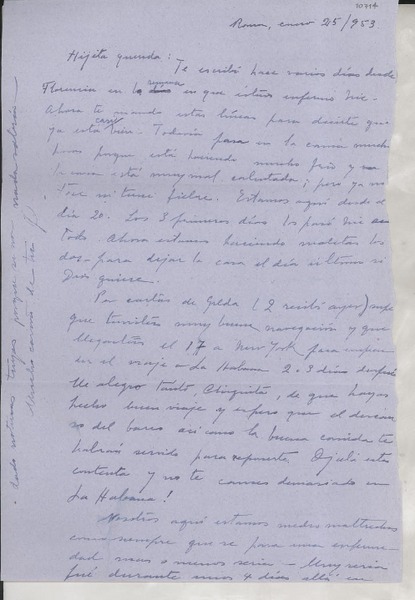 10714
Roma, enero 25/953
Hijita querida: Te escribí hace varios días desde
Florencia en la semana en que estuvo enfermo Nic.
Ahora te mando estas líneas para decirte que
ya está casi bien. Todavía pasa en la cama muchas
horas porque está haciendo mucho frío y
la casa está muy mal calentada; pero ya no
tose ni tiene fiebre. Estamos aquí desde el
día 20. Los 3 primeros días los pasó Nic en
todo. Ahora estamos haciendo maletas los
dos para dejar la casa el día último si
Dios quiere.
Por cartas de Gilda (2 recibí ayer) supe
que tuvistéis muy buena navegación y que
llegastéis el 17 a New York para
el viaje a La Habana 2 o 3 días después
Me alegro tanto, Chiquita, de que hayas
hecho buen viaje y espero que el descan
so del barco así como la buena comida te
habrán servido para reponerte. Ojalá estés
contenta y no te canses demasiado en
La Habana!
Nosotros aquí estamos medio maltrechos
como siempre que se pasa una enferme-
dad más o menos seria — Muy seria
fué durante unos 4 días allá en